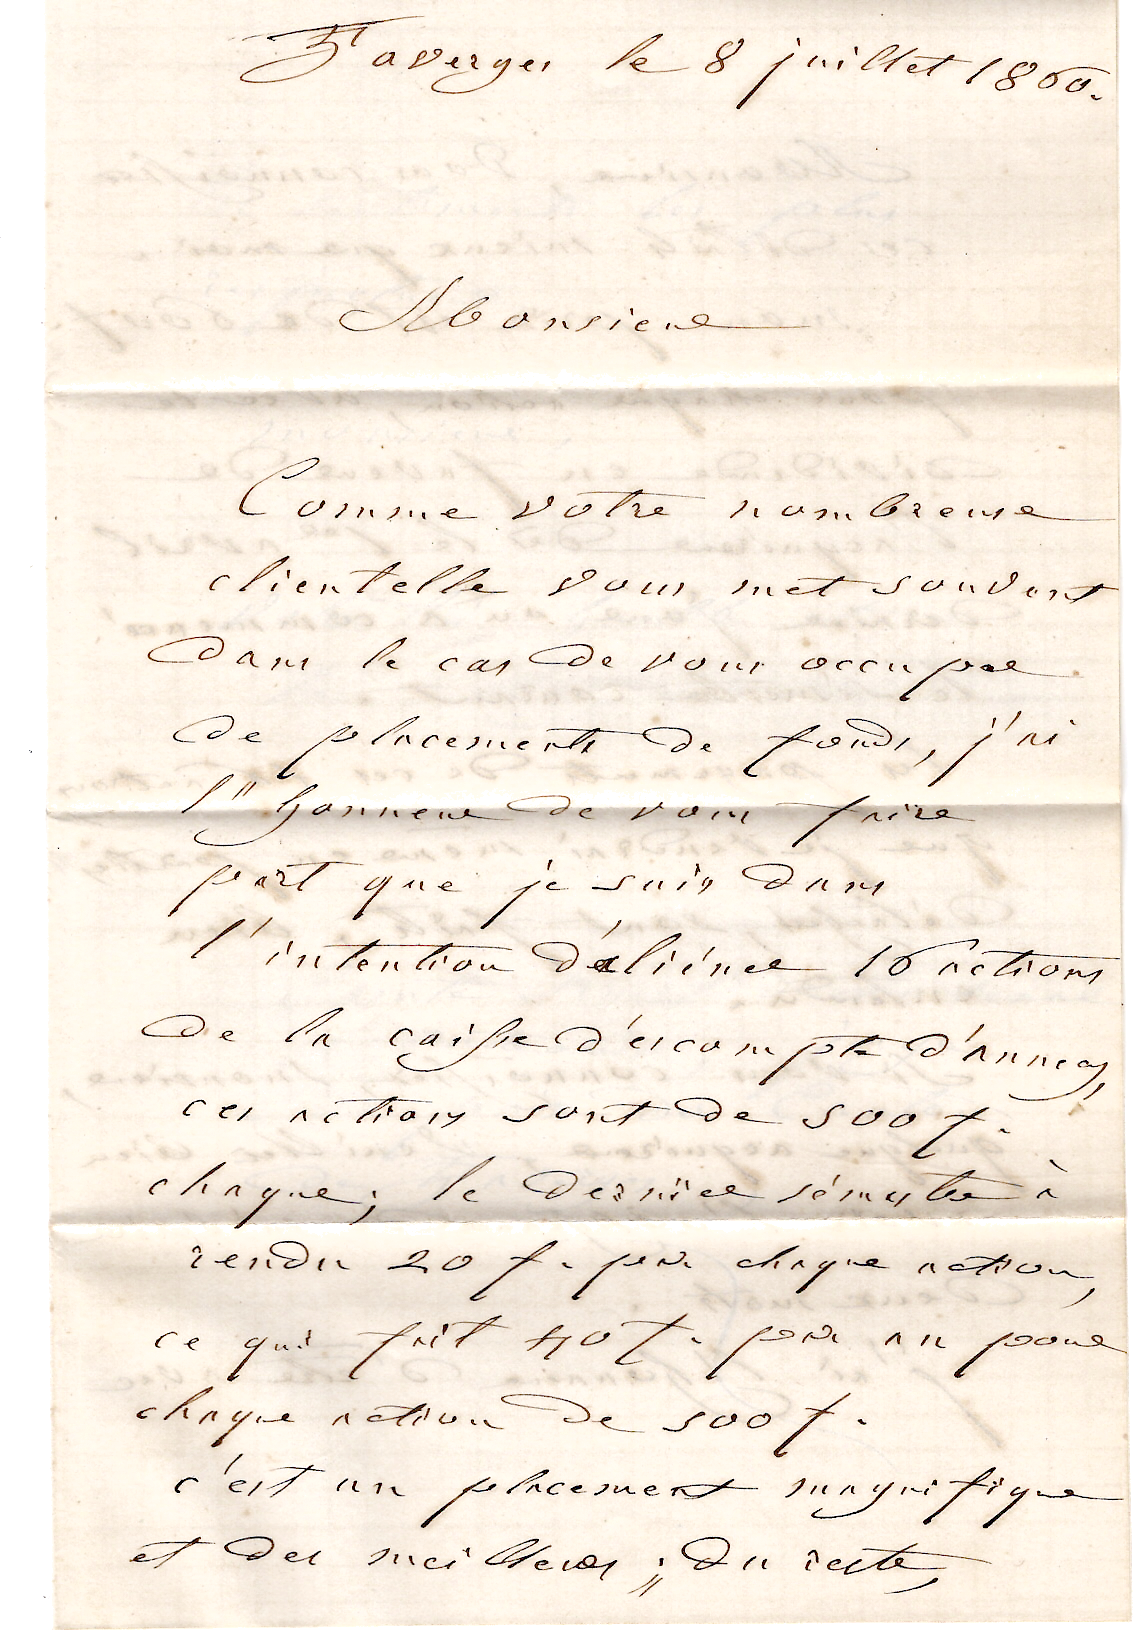 Faverges le 8 juillet 1860.
Monsieur
Comme votre nombreuse
clientelle vous met souvent
dans le cas de vous occuper
de placements de fonds, j'ai
l'honneur de vous faire
part que je suis dans
l'intention d'aliéner 16 actions
de la caisse d'escompte d'annecy,
ces actions sont de 500 f.
chaque; le dernier sémestre à
rendu 20 f. par chaque action,
ce qui fait 40 f. par an pour
chaque action de 500 f.
c'est un placement magnifique
et des meilleurs; du reste,